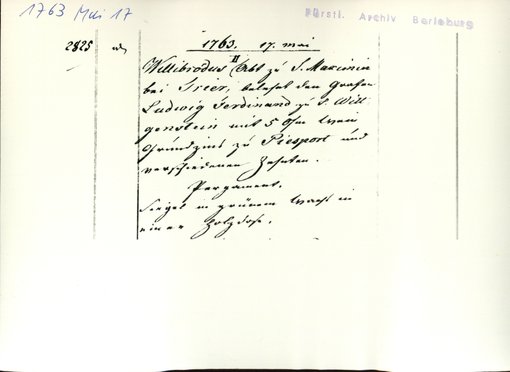 1763 Mai 17
Fürstl. Archiv Berleburg
2825
1763. 17. Mai
Willibrodus II Abt zu S. Maximin
bei Trier, belehnt den Grafen
Ludwig Ferdinand zu S. Witt-
genstein mit 5 Ohm Wein
Grundzins zu Piesport und
verschiedenen Zehnten.
Pergament.
Siegel in grünem Wachs in
einer Holzdose.